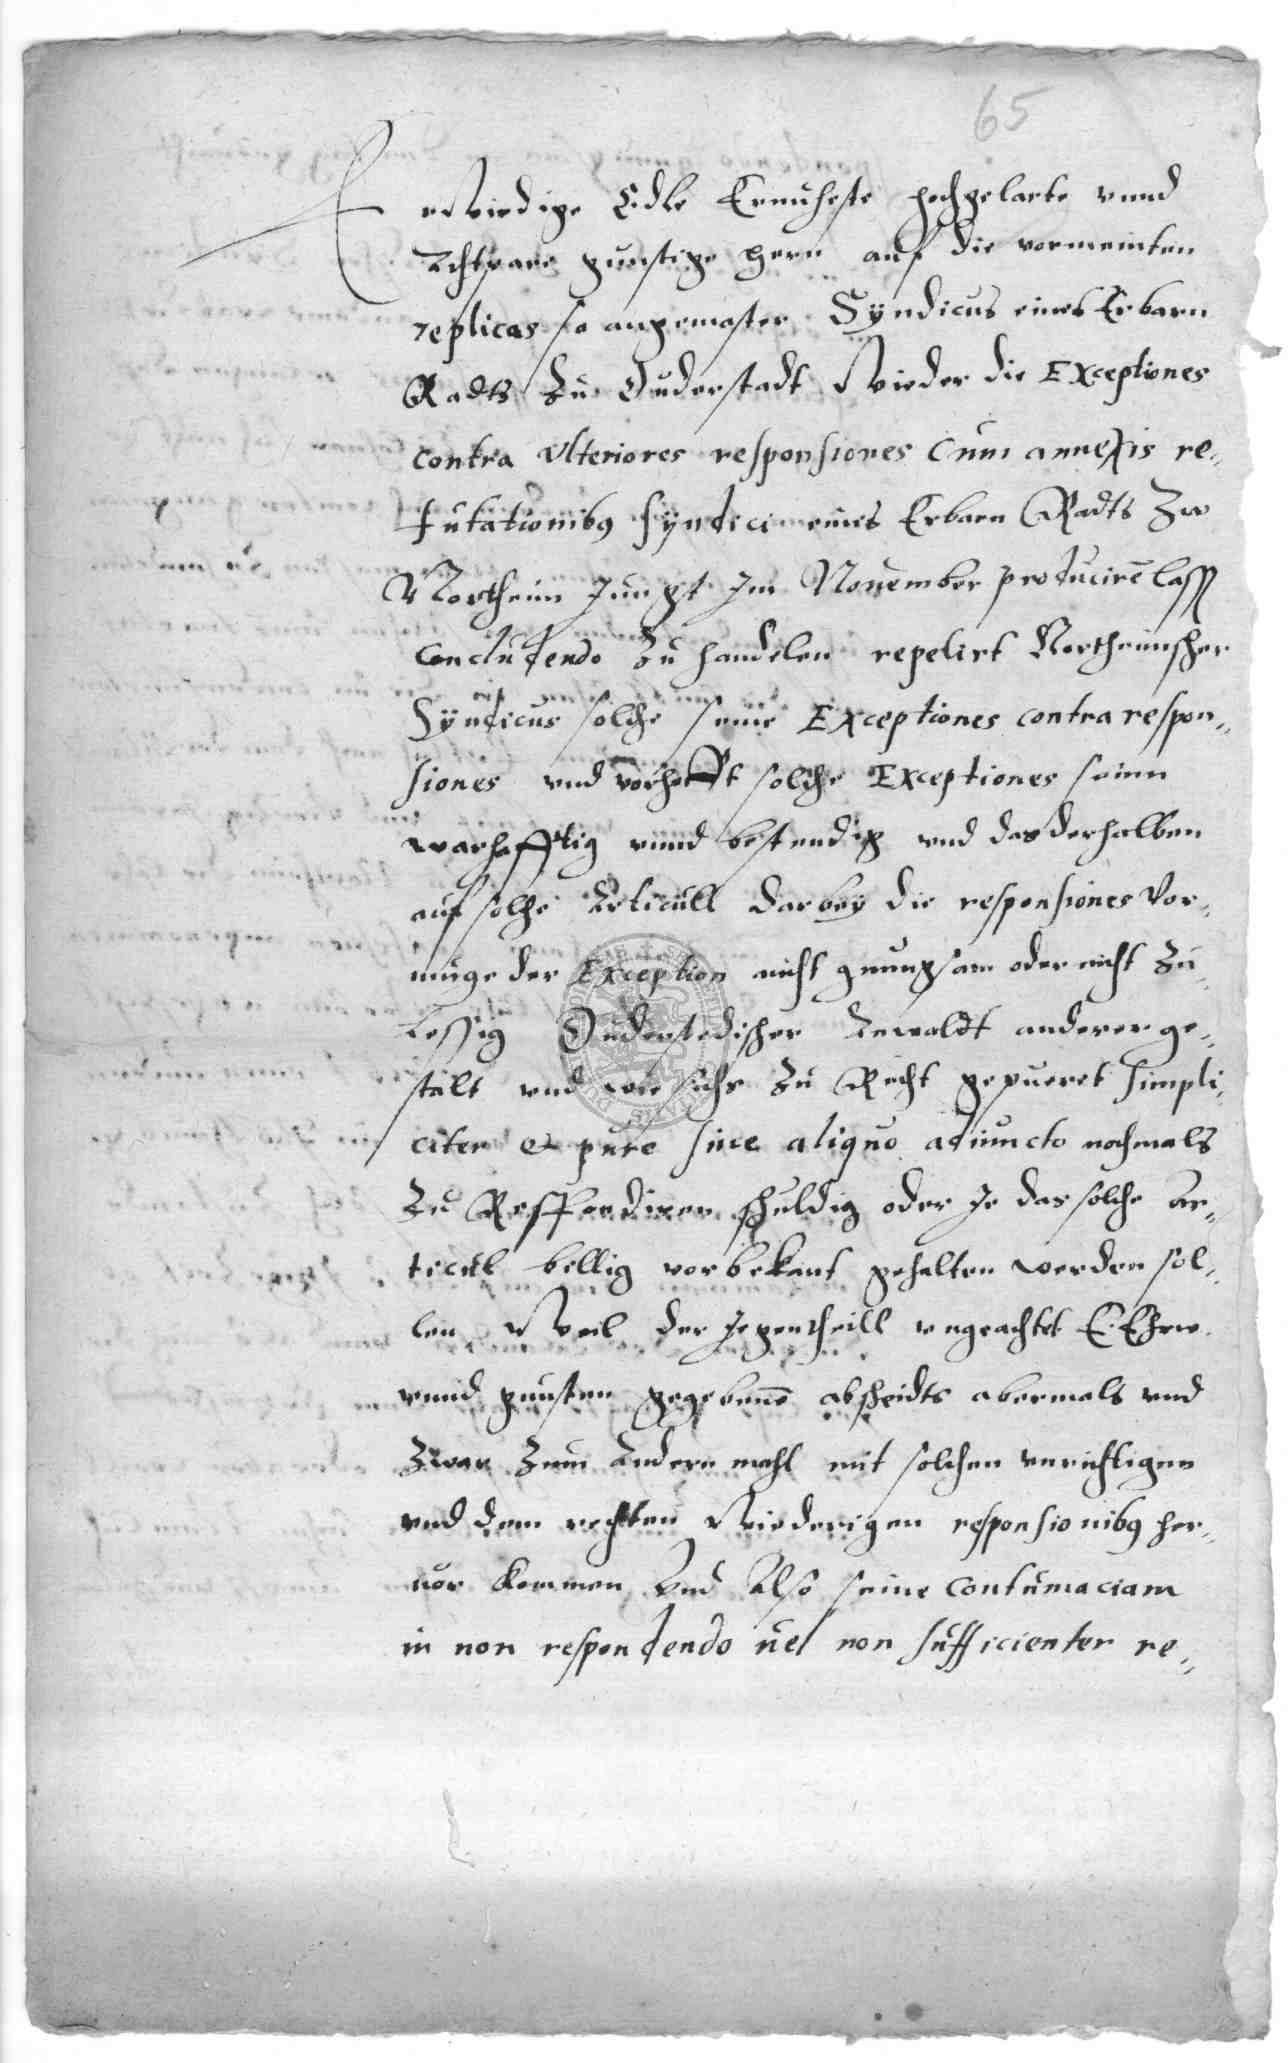 65
Erwirdige Edle Ernuheste hochgelarte vnnd
Achtpare gunstige Hern auf die vormeinten
replicas so angemaster Syndicus eines Erbarn
Radts Zu Duderstadt Wieder die Exceptiones
contra vlteriores responsiones cum annexis re-
futationibus syndici eines Erbarn Radts Zw
Northeim Jungst Im Nouember producirē lassen
concludendo Zu handelen repetirt Northeimscher
Syndicus solche seine Exceptiones contra respon-
siones vnd vorhofft solche Exceptiones seinn
warhafftig vnnd bestendig vnd das derhalben
auf solche Articull darbey die responsiones Vor-
muge der Exception nicht gnungsam oder nicht Zu-
Lessig Duderstedischer Anwaldt anderer ge-
stalt vnd wie sichs Zu Recht gepueret simpli-
citer & pure sine aliquo adiuncto nochmals
Zu Respondiren schuldig oder Je das solche Ar-
ticul billig vor bekant gehalten werden sol-
len Weil der Jegentheill vngeachtet E. Ehrw.
vnnd gunsten gegebenē abscheidts abermals vnd
Zwar Zum Andern mahl mit solchen vnrichtigen
vnd dem rechten Wiederigen responsionibus her-
uor kommen Vnd Also seine contumaciam
in non respondendo uel non sufficienter re-